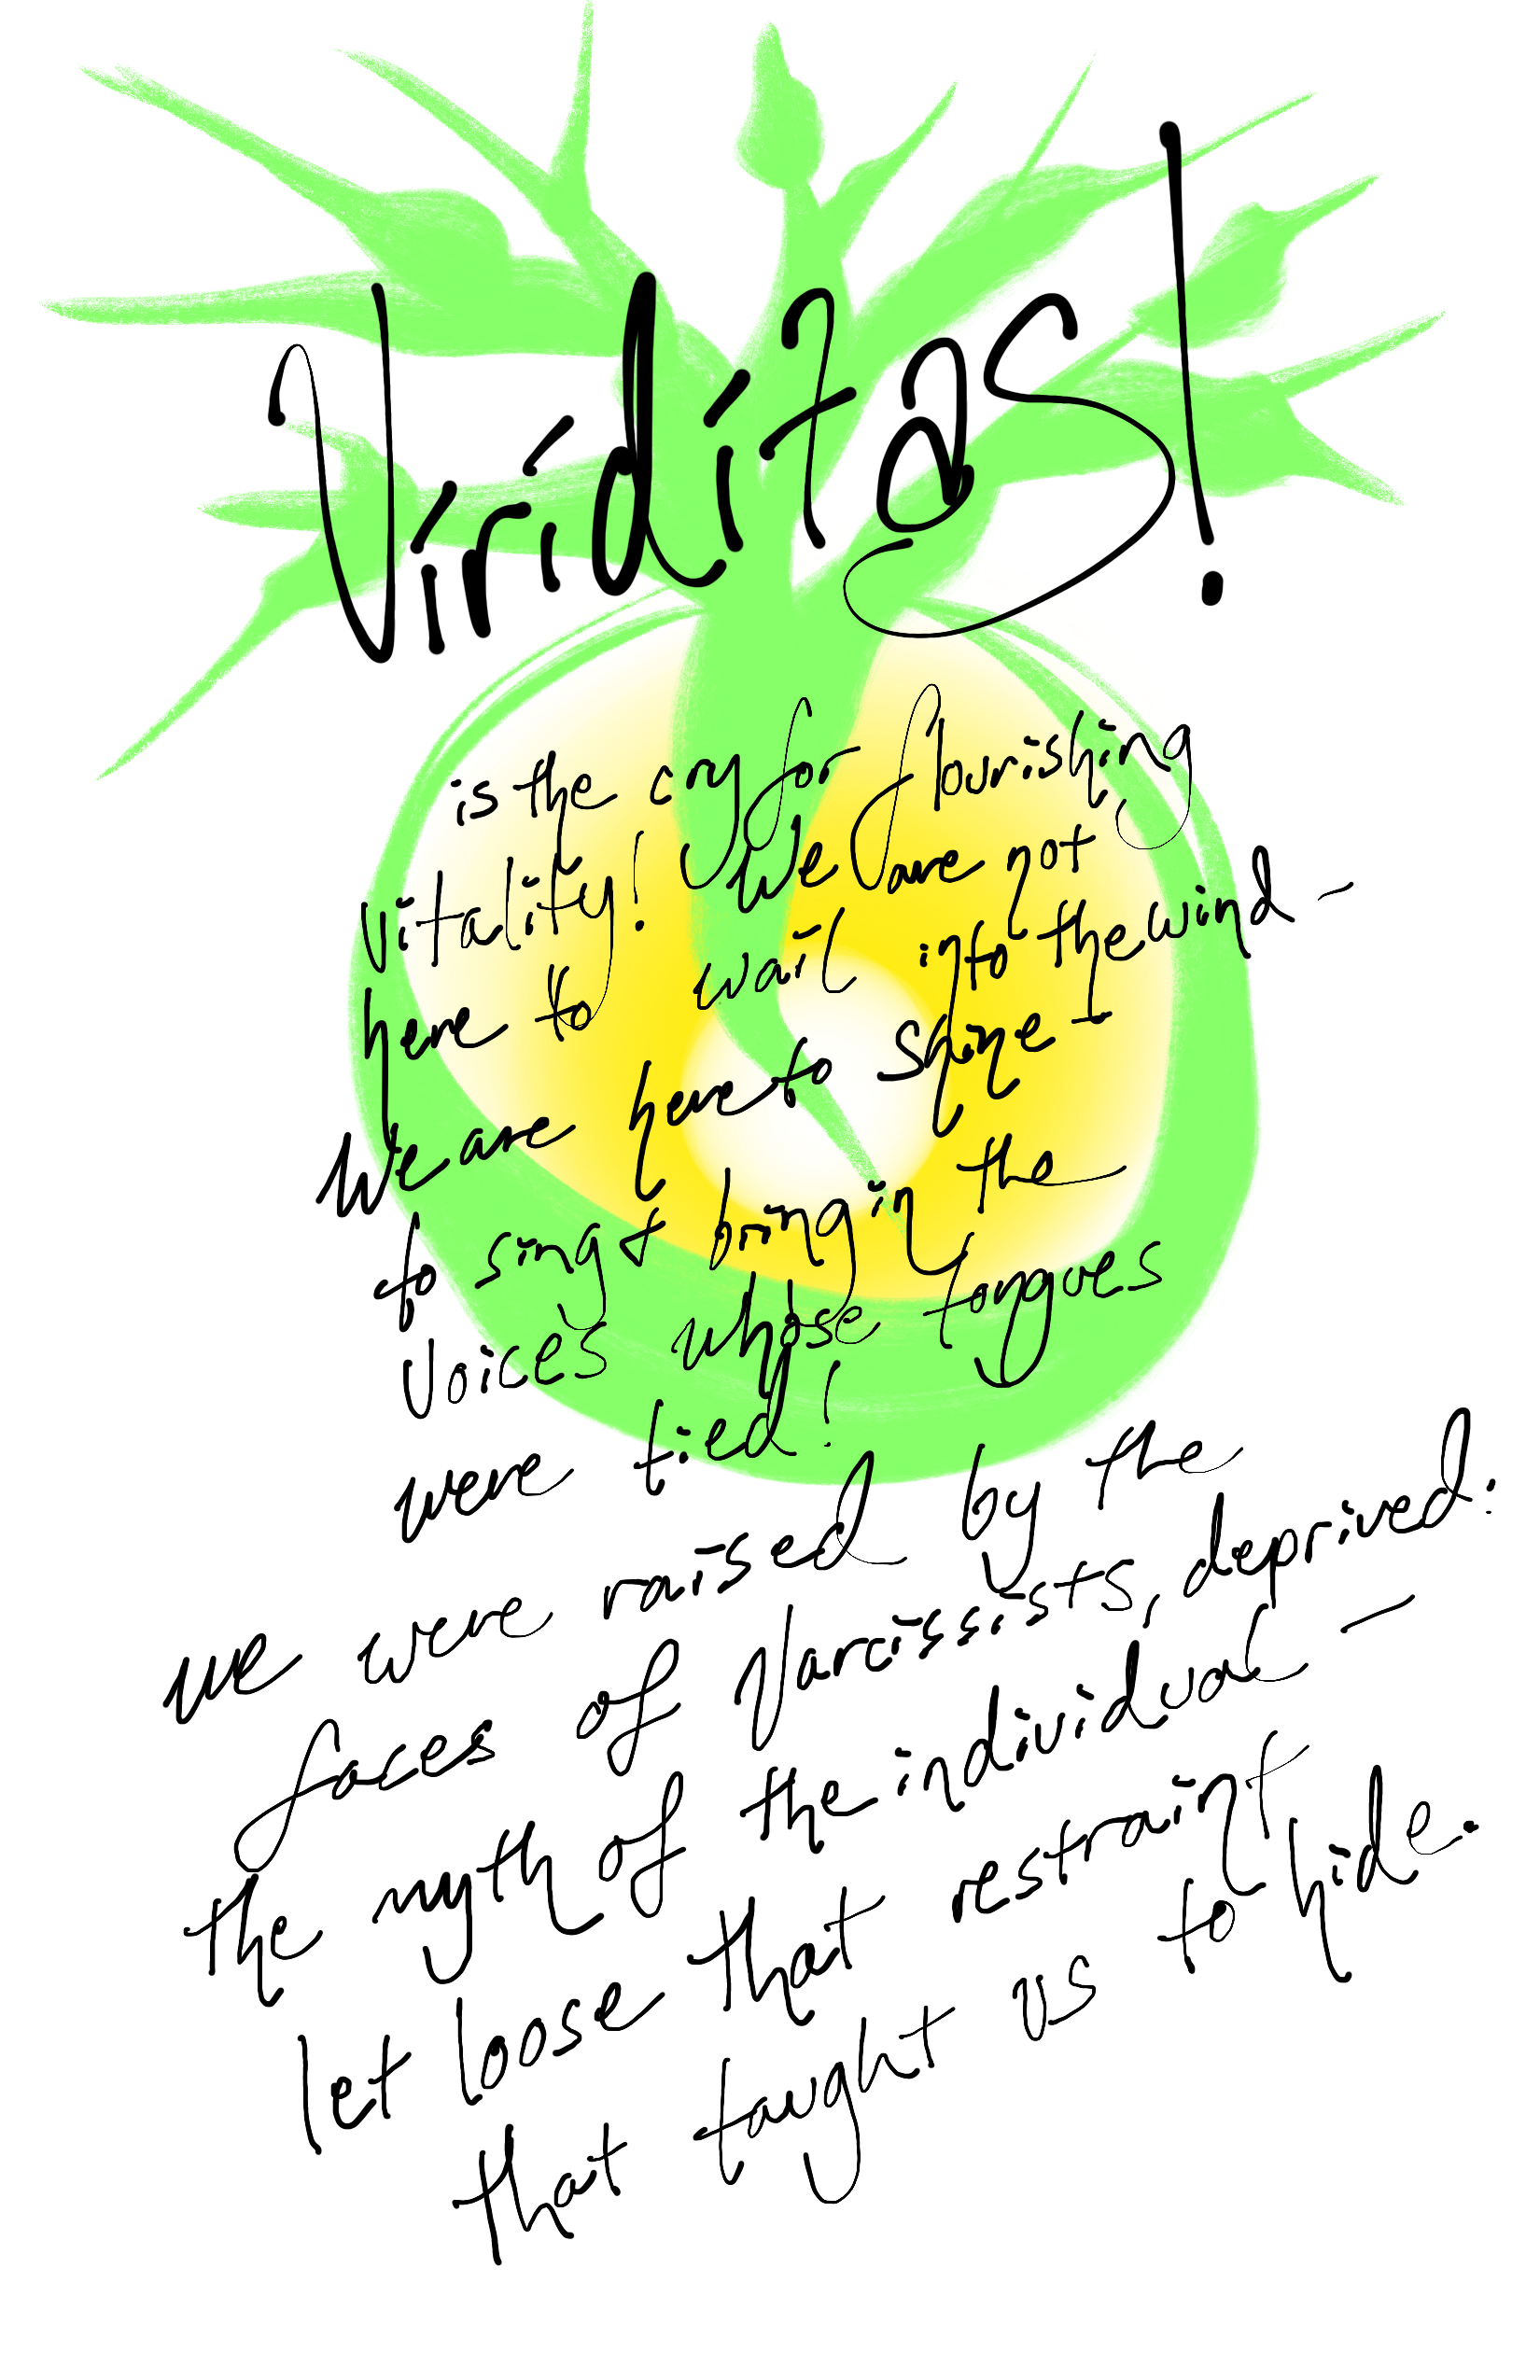 Viriditas!
is the cry for flourishing
vitality! We are not
here to wail into the wind –
We are here to shine –
to sing & bring in the
voices whose tongues
were tied!
we were raised by the
faces of Narcissists, deprived:
the myth of the individual –
let loose that restraint
that taught us to hide.